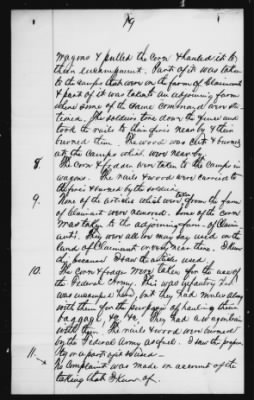 19
wagons & pulled the corn & hauled it to
their encampment. Part of it was taken
to the camps that were on the farm of Claimant
& part of it was taken to an adjoining farm
where some of the same command were sta-
tioned. The soldiers tore down the fence and
took the rails to their fires nearby & then
burned them. The wood was cut & burned
at the camps which were nearby.
8. The corn & fodder were taken to the camps in
wagons. The rails & wood were carried to
the fires & burned by the soldiers.
9. None of the articles which were taken from the farm
of Claimant were removed. Some of the corn
was taken to the adjoining farm of Claim-
ant. They were all we may say used on the
land of Claimant or very near there. I know
this because I saw the articles used.
10. The corn & forage were taken for the use of
the Federal Army. This was infantry that
was encamped here, but they had mules along
with them for the purpose of hauling their
baggage, &c, &c. They had a wagon train
with them. The rails & wood were burned
by the Federal Army as fuel. I saw the proper-
ty or a part of it used
11. No complaint was made on account of the
taking that I know of.